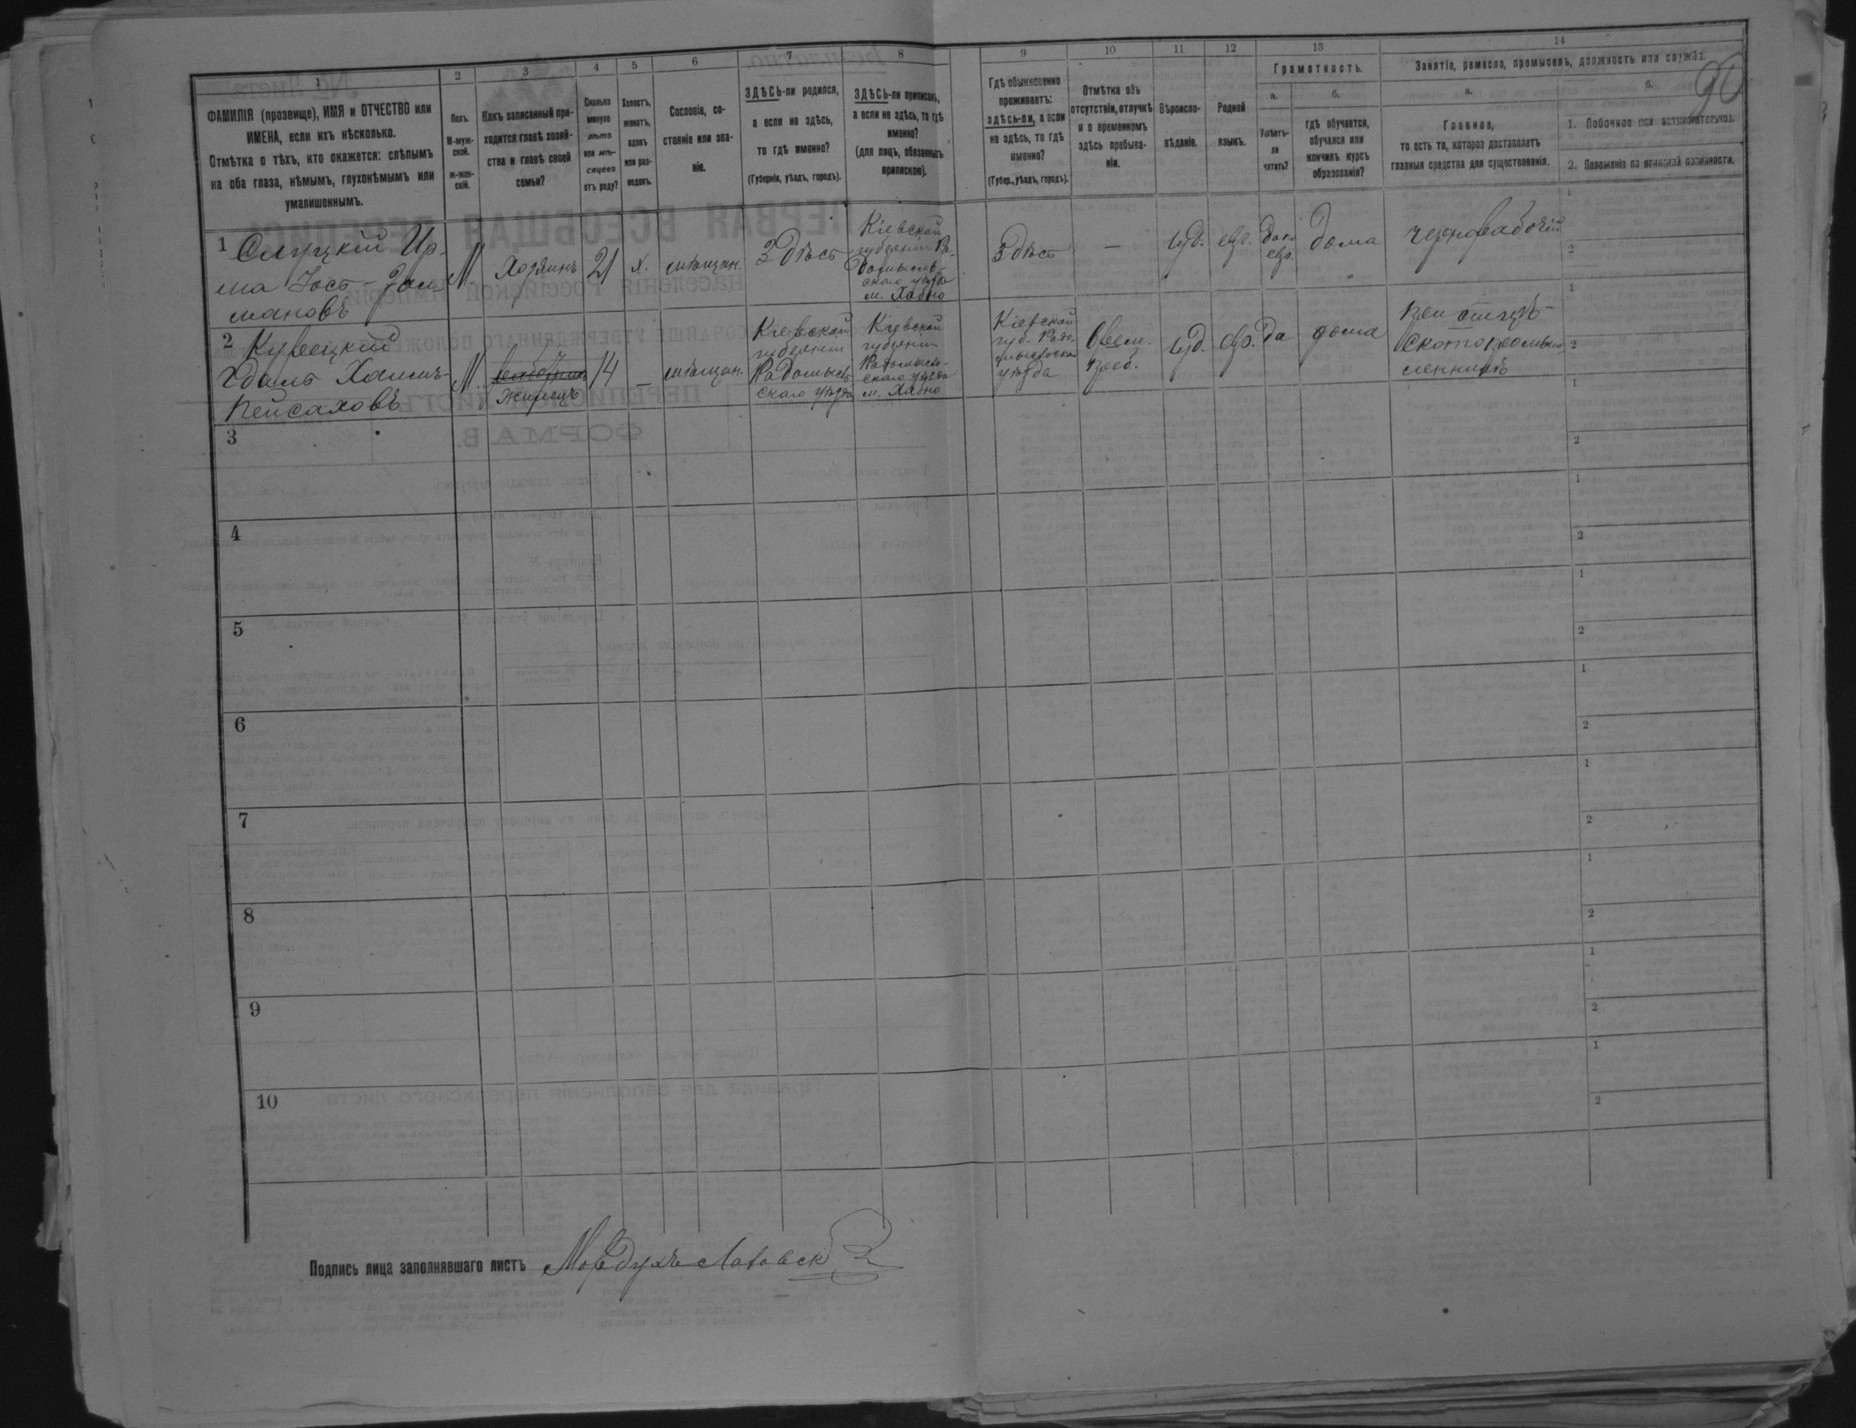 90
1 2 3 4 5 6 7 8 9 10 11 12 13 14
ФАМИЛІЯ (прозвище), ИМЯ и ОТЧЕСТВО или
ИМЕНА, если ихъ нѣсколько.
Отмѣтка о тѣхъ, кто окажется: слѣпымъ
на оба глаза, нѣмымъ, глухонѣмымъ или
умалишеннымъ.
Полъ.
М-муж-
ской.
Ж-жен-
скій.
Какъ записанный при-
ходится главѣ хозяй-
ства и главѣ своей
семьи?
Сколько
минуло
лѣтъ
или мѣ-
сяцевъ
отъ роду?
Холостъ,
женатъ,
вдовъ
или раз-
веденъ.
Сословіе, со-
стояніе или зва-
ніе.
ЗДѢСЬ-ли родился,
а если не здѣсь,
то гдѣ именно?
(Губернія, уѣздъ, городъ).
ЗДѢСЬ-ли приписанъ,
а если не здѣсь, то гдѣ
именно?
(для лицъ, обязанныхъ
припискою).
Гдѣ обыкновенно
проживаетъ:
здѣсь-ли, а если
не здѣсь, то гдѣ
именно?
(Губер., уѣздъ, городъ).
Отмѣтка объ
отсутствіи, отлучкѣ
и о временномъ
здѣсь пребыва-
ніи.
Вѣроиспо-
вѣданіе.
Родной
языкъ.
Грамотность.
а.
Умѣетъ-
ли
читать?
б.
гдѣ обучается,
обучался или
кончилъ курсъ
образованія?
Занятіе, ремесло, промыселъ, должность или служба.
а.
Главное,
то есть то, которое доставляетъ
главныя средства для существованія.
б.
1. Побочное или вспомогательное.
2. Положеніе по воинской повинности.
1 Слуцкій
мановъ
М.
Хозяинъ
21
х.
мѣщан.
Здѣсь
Кіевской
губерніи Ра-
домысль-
скаго уѣзда
м. Хабно
Здѣсь
—
Іуд.
евр.
дома
чернорабочій
1
2
2 Курецкій
Пейсаховъ
М.
жилецъ
14
—
мѣщан.
Кіевской
губерніи
Радомысль
скаго уѣзда
Кіевской
губерніи
Радомысль-
скаго уѣзда
м. Хабно
Кіевской
губ. Радо-
мысльска
уѣзда
Врем.
преб.
Іуд.
евр.
Да
дома
скотопромыш
ленникъ
1
2
3
1
2
4
1
2
5
1
2
6
1
2
7
1
2
8
1
2
9
1
2
10
1
2
Подпись лица заполнявшаго листъ Мордухъ